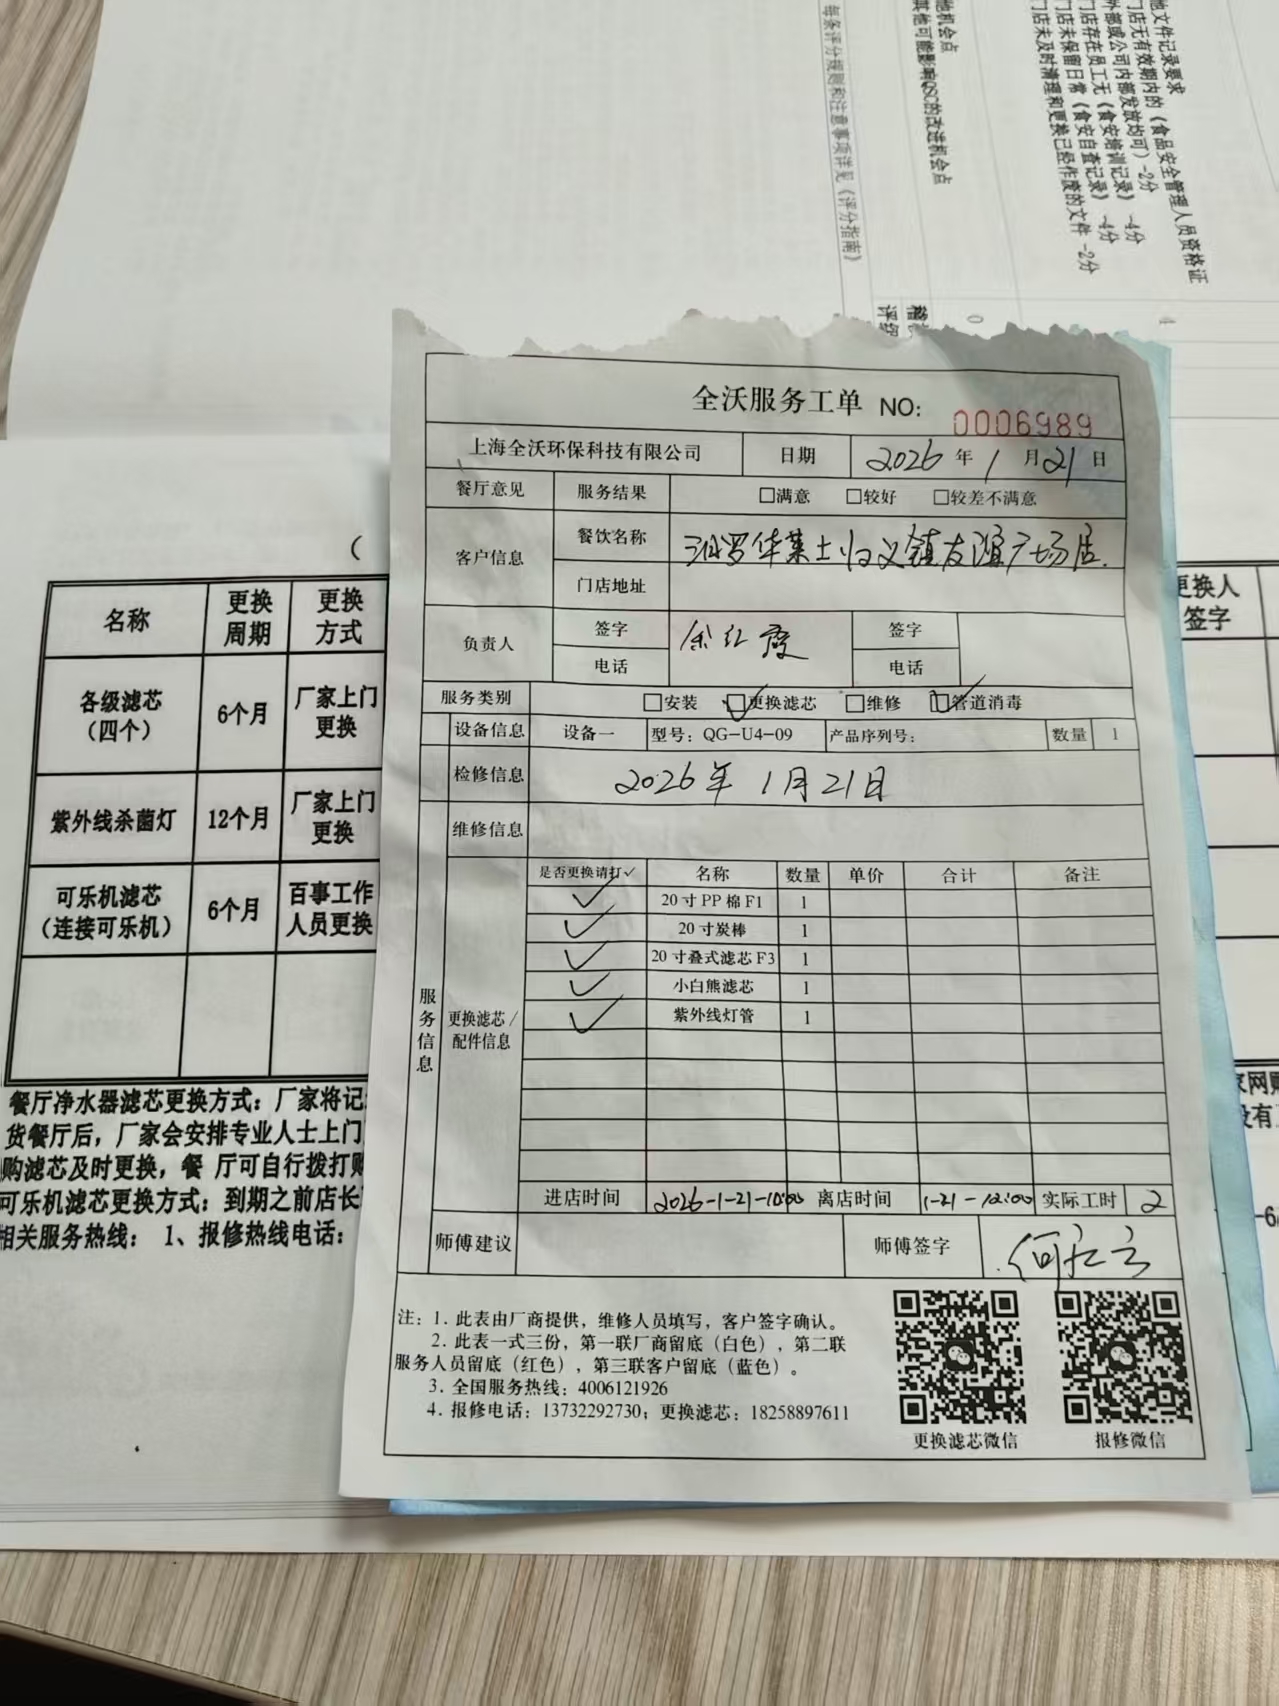 他机会点
其他可能影响QSC的改进机会点
每条评分规则和注意事项详见《评分指南》
他文件记录要求
门店无有效期内的《食品安全管理人员资格证
外部或公司内部发放均可）-2分
门店存在员工无《食安培训记录》 -4分
门店未保留日常《食安自查记录》 -4分
门店未及时清理和更换已经作废的文件 -2分
0
4
全沃服务工单 NO: 0006989
上海全沃环保科技有限公司 日期 2026 年 1 月 21 日
餐厅意见 服务结果 □满意 □较好 □较差不满意
客户信息 餐饮名称 汨罗华莱士归义镇友谊广场店.
门店地址
负责人 签字 余红霞 签字
电话 电话
服务类别 □安装 ☑更换滤芯 □维修 ☑管道消毒
设备信息 设备一 型号：QG-U4-09 产品序列号： 数量 1
检修信息 2026年 1月21日
维修信息
服务信息
更换滤芯/
配件信息
是否更换请打✓ 名称 数量 单价 合计 备注
✓ 20寸PP棉F1 1
✓ 20寸炭棒 1
✓ 20寸叠式滤芯F3 1
✓ 小白熊滤芯 1
✓ 紫外线灯管 1
进店时间 2026-1-21-10:00 离店时间 1-21-12:00 实际工时 2
师傅建议 师傅签字
注：1. 此表由厂商提供，维修人员填写，客户签字确认。
2. 此表一式三份，第一联厂商留底（白色），第二联
服务人员留底（红色），第三联客户留底（蓝色）。
3. 全国服务热线：4006121926
4. 报修电话：13732292730；更换滤芯：18258897611
更换滤芯微信 报修微信
（
名称 更换周期 更换方式
各级滤芯（四个） 6个月 厂家上门更换
紫外线杀菌灯 12个月 厂家上门更换
可乐机滤芯（连接可乐机） 6个月 百事工作人员更换
更换人
签字
餐厅净水器滤芯更换方式：厂家将记
货餐厅后，厂家会安排专业人士上门
购滤芯及时更换，餐 厅可自行拨打
可乐机滤芯更换方式：到期之前店长
相关服务热线： 1、报修热线电话：